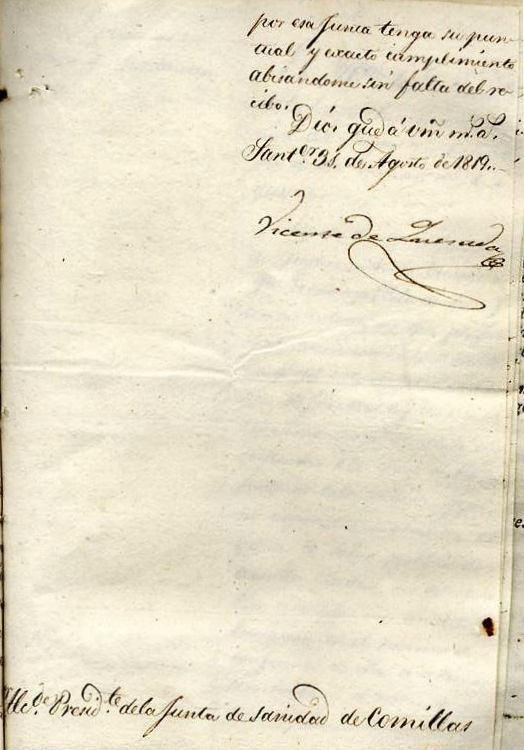 por esa Junta tenga su pun-
tual y exacto cumplimiento
abisandome sin falta del re-
cibo.
Dios gue á vm m.s a.s
Sant.er 31. de Agosto de 1819.
Vicente de Quesada
Alc.de Presid.te de la Junta de sanidad de Comillas